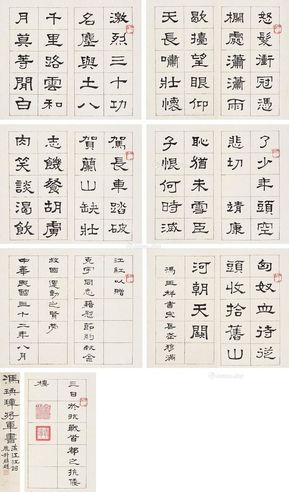 怒髮衝冠憑
欄處瀟瀟雨
歇擡望眼仰
天長嘯壯懷
激烈三十功
名塵與土八
千里路雲和
月莫等閒白
了少年頭空
悲切 靖康
恥猶未雪臣
子恨何時滅
駕長車踏破
賀蘭山缺壯
志饑餐胡虜
肉笑談渴飲
匈奴血待從
頭收拾舊山
河朝天闕
馮玉祥書宋岳武穆滿
江紅以贈
同志藉慰節約獻金
救國運動之賢勞
中華民國三十二年八月
三日於 首都之抗倭
樓
馮煥章將軍書
滿江紅詞